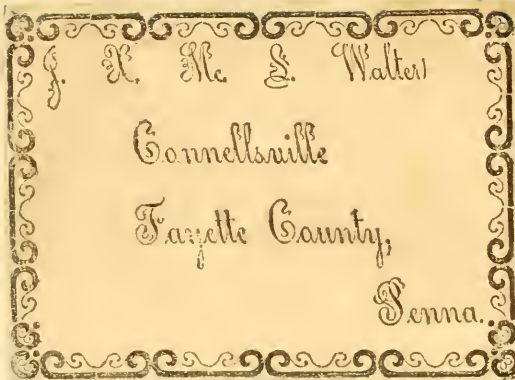 J. X. Mc. L. Walter
Connellsville
Fayette County,
Penna.